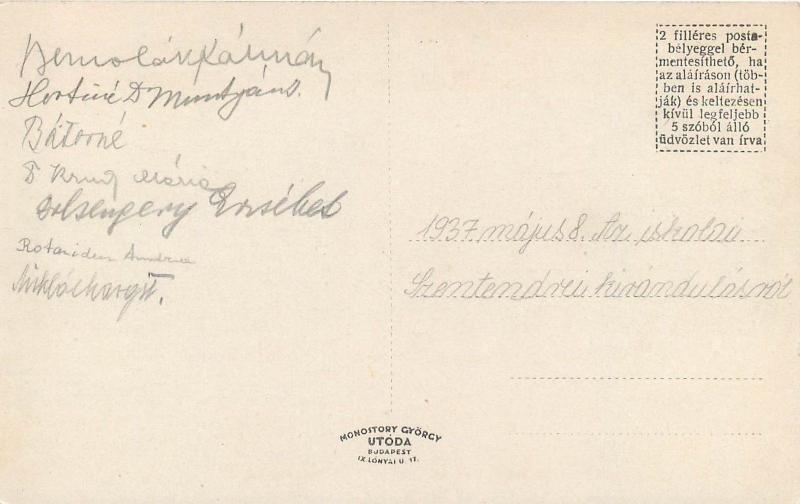 Kálmán
Hortiné Dr
Bátorné
Dr Mária
Erzsébet
Andrea
Miklós Margit
2 filléres posta-
bélyeggel bér-
mentesíthető, ha
az aláíráson (töb-
ben is aláírhat-
ják) és keltezésen
kívül legfeljebb
5 szóból álló
üdvözlet van írva
1937 május 8. Az iskolai
Szentendrei kirándulásról
MONOSTORY GYÖRGY
UTÓDA
BUDAPEST
IX. LÓNYAI U. 17.